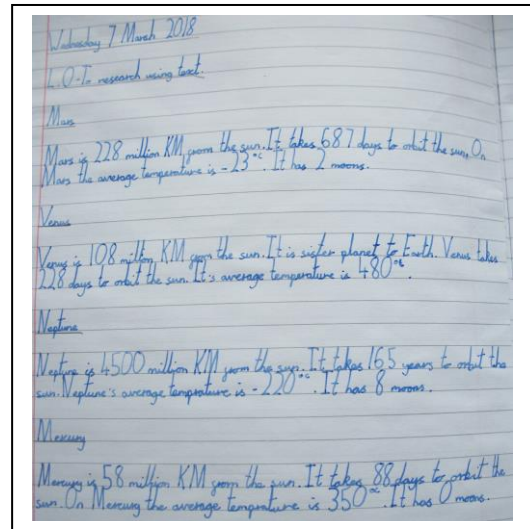 Wednesday 7 March 2018
L.O-To research using text.
Mars
Mars is 228 million KM from the sun. It takes 687 days to orbit the sun. On
Mars the average temperature is -23°c. It has 2 moons.
Venus
Venus is 108 million KM from the sun. It is sister planet to Earth. Venus takes
228 days to orbit the sun. It's average temperature is 480°c.
Neptune
Neptune is 4500 million KM from the sun. It takes 165 years to orbit the
sun. Neptune's average temprature is -220°c. It has 8 moons.
Mercury
Mercury is 58 million KM from the sun. It takes 88 days to orbit the
sun. On Mercury the average temprature is 350°c. It has 0 moons.